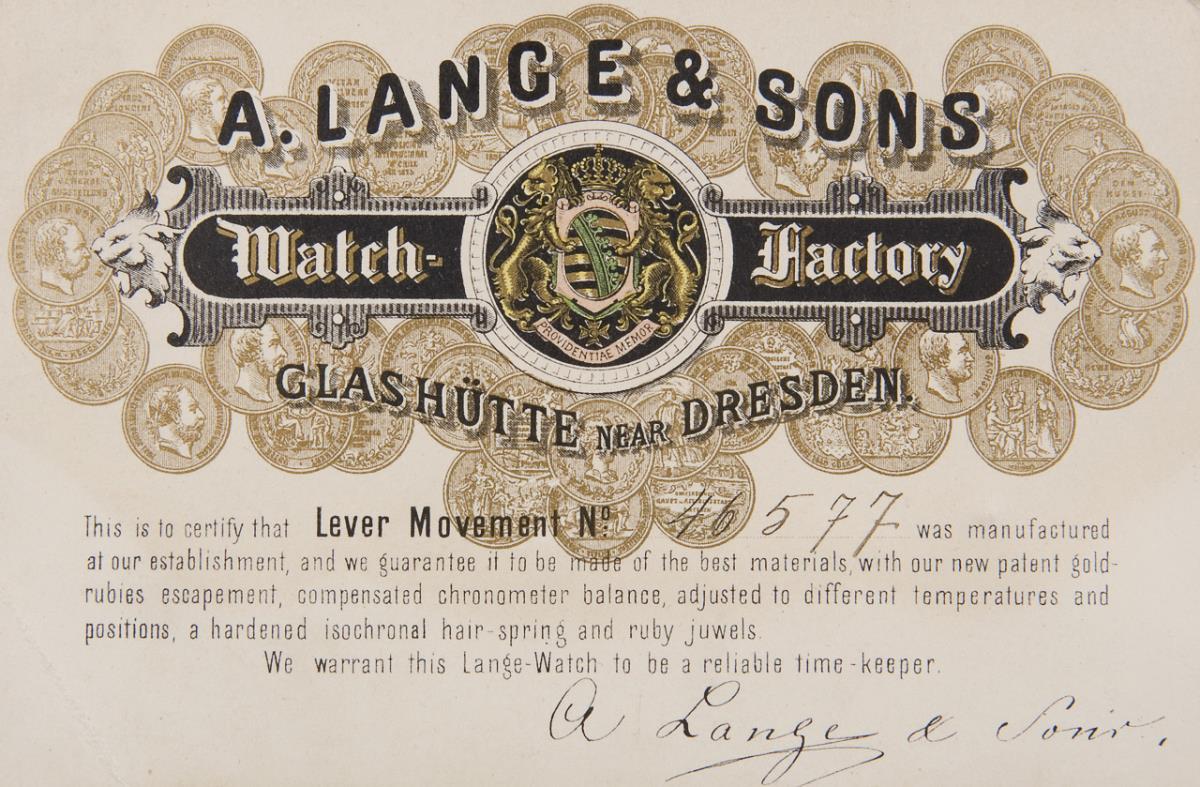 A. LANGE & SONS
Watch- Factory
PROVIDENTIAE MEMOR
GLASHÜTTE NEAR DRESDEN.
This is to certify that Lever Movement No. 46577 was manufactured
at our establishment, and we guarantee it to be made of the best materials, with our new patent gold-
rubies escapement, compensated chronometer balance, adjusted to different temperatures and
positions, a hardened isochronal hair-spring and ruby juwels.
We warrant this Lange-Watch to be a reliable time-keeper.
A Lange & Sons.